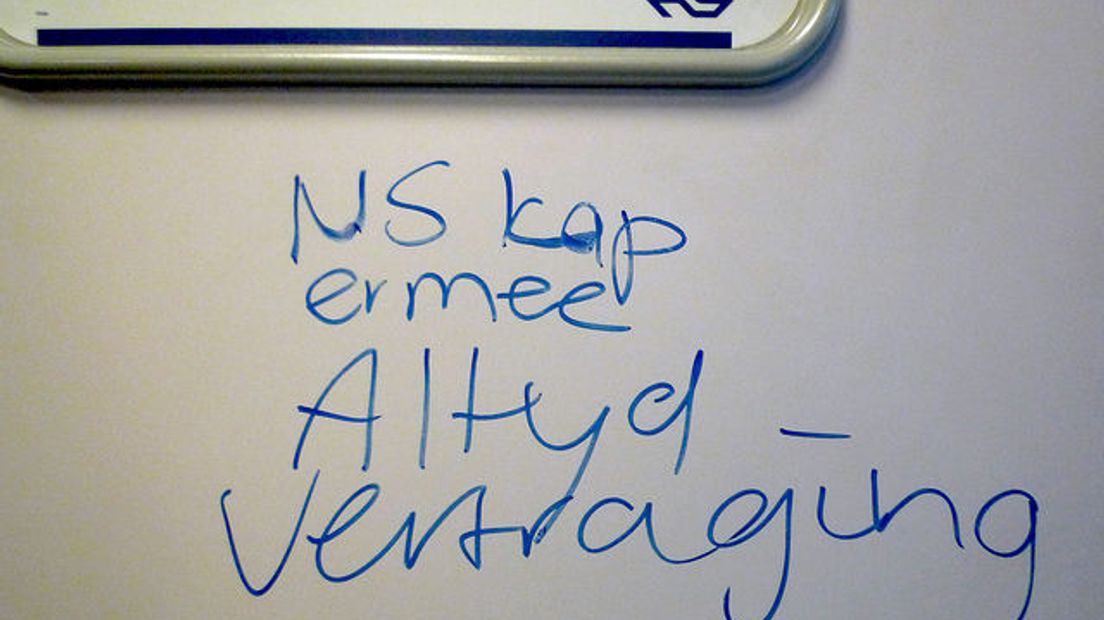 NS kap
ermee
Altyd
vertraging